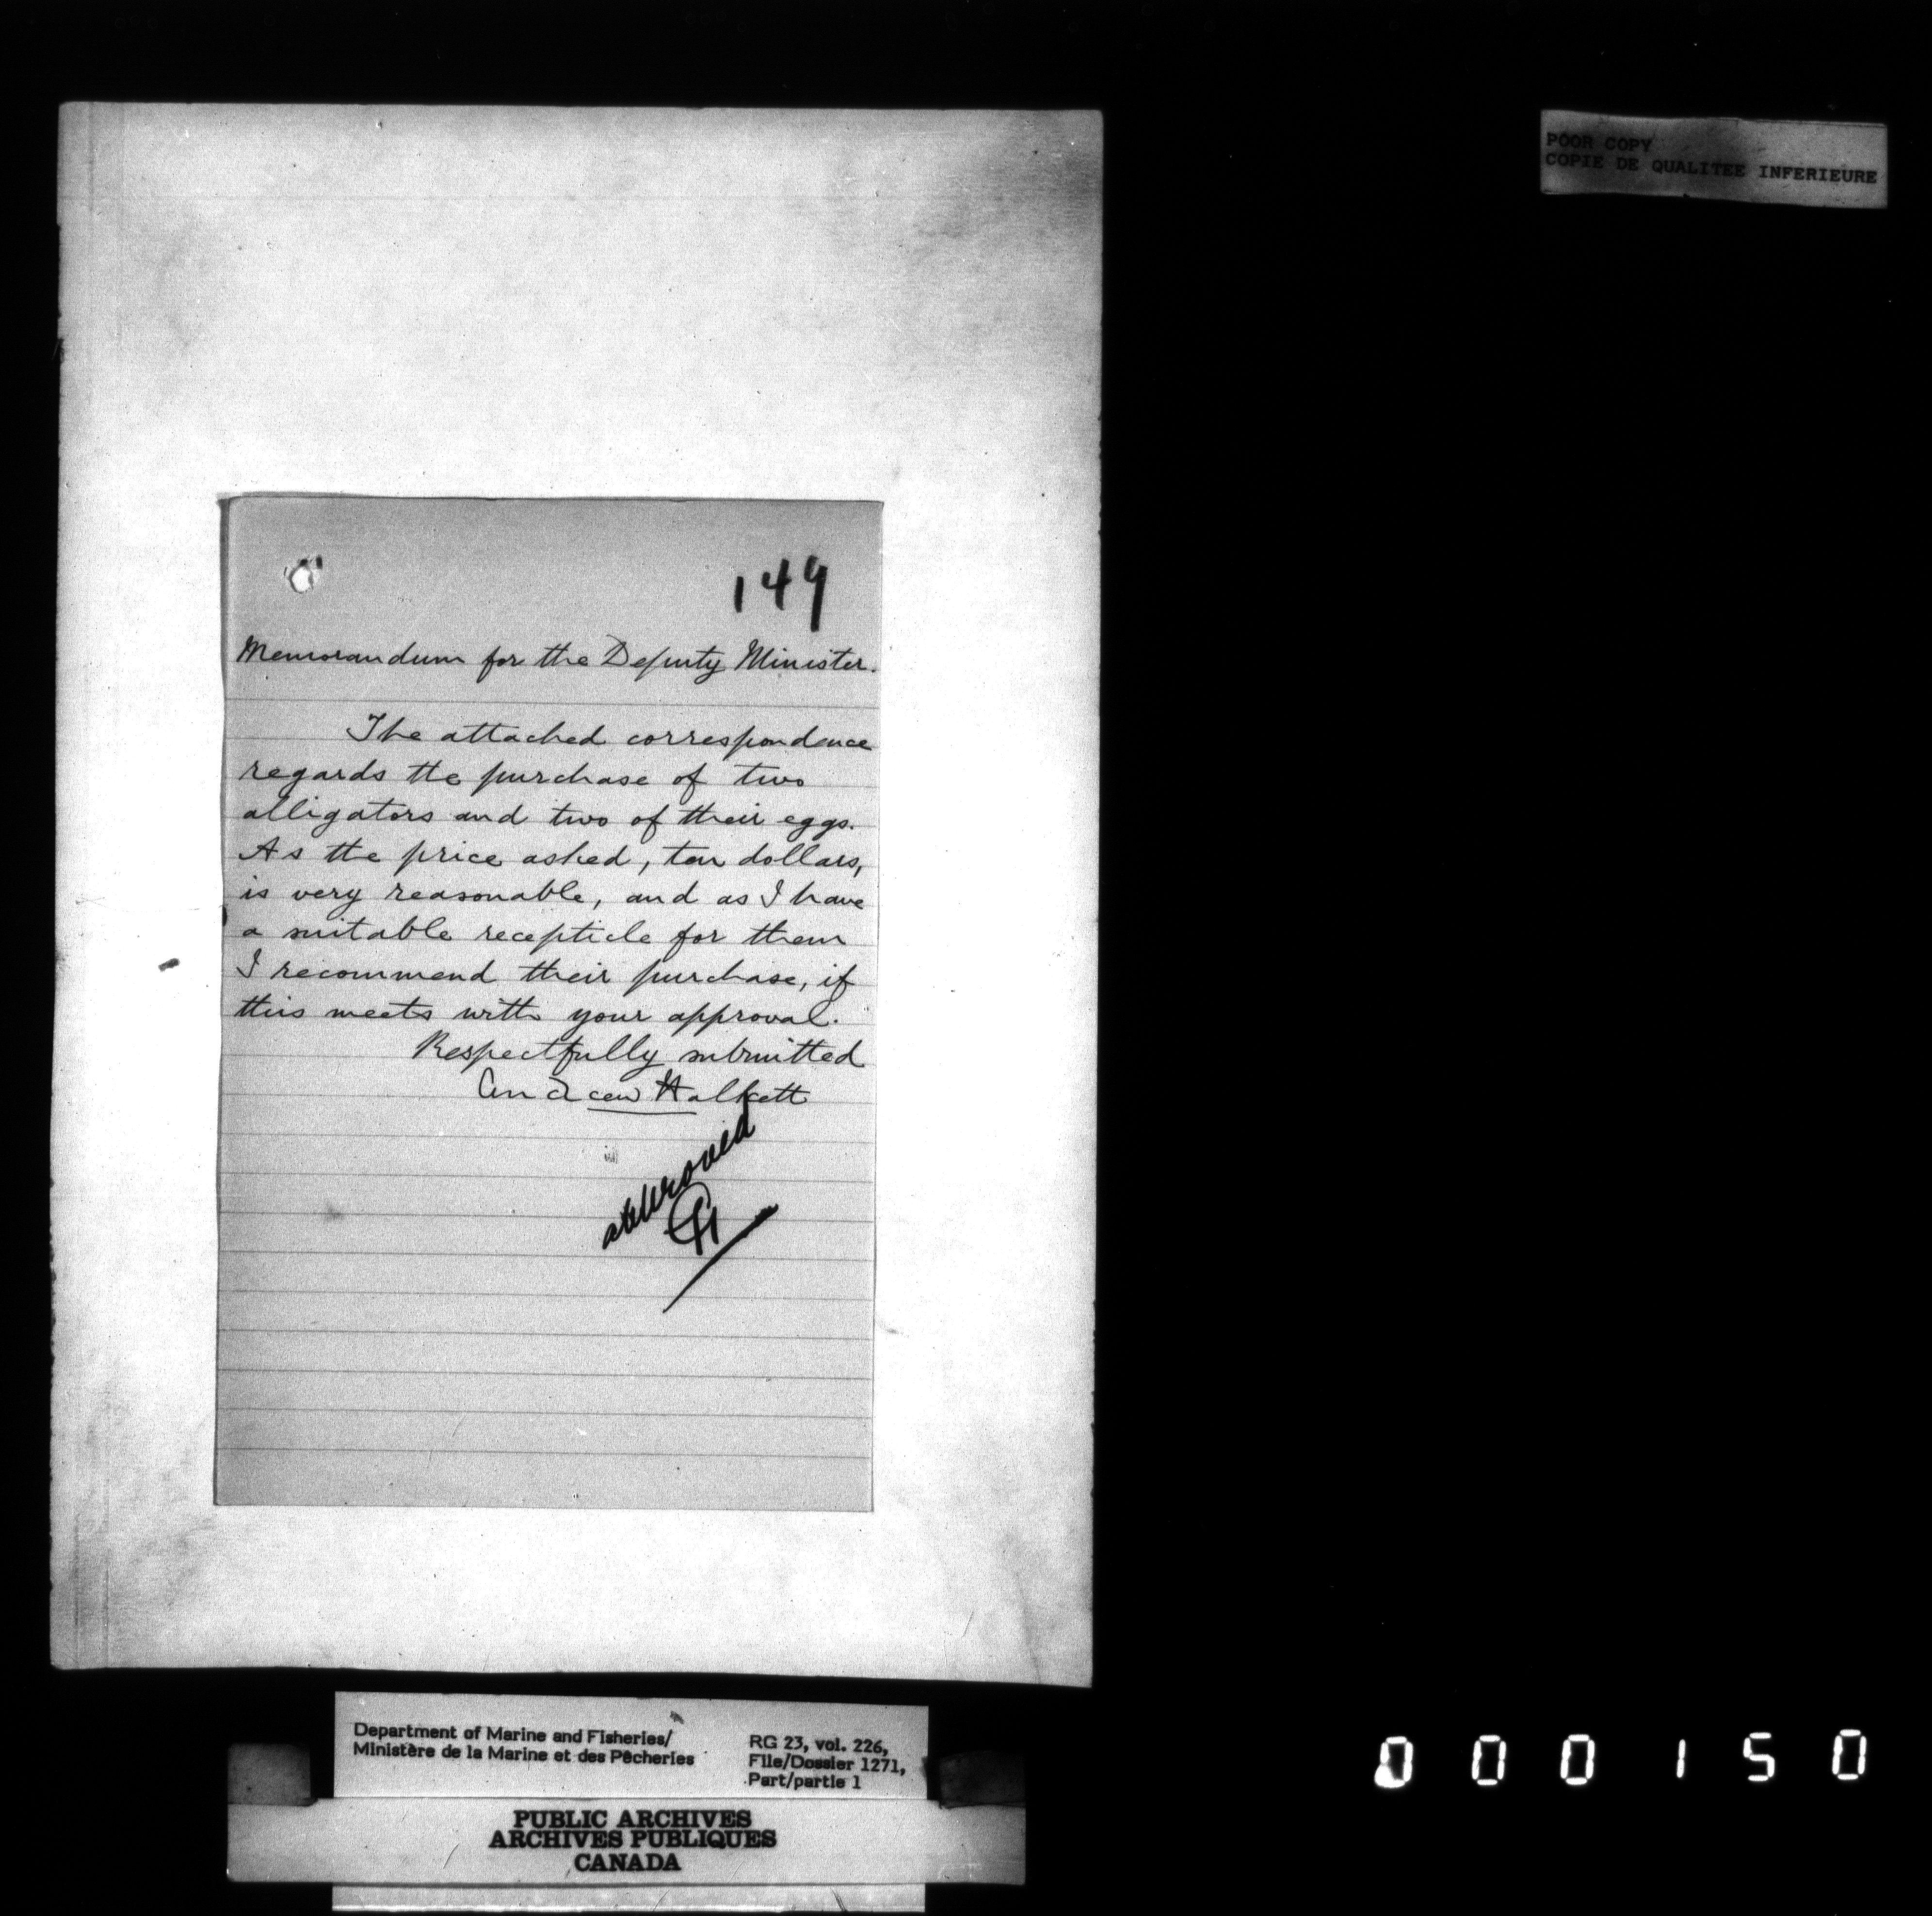 POOR COPY
COPIE DE QUALITEE INFERIEURE
149
Memorandum for the Deputy Minister.
The attached correspondence
regards the purchase of two
alligators and two of their eggs.
As the price asked, ten dollars,
is very reasonable, and as I have
a suitable recepticle for them
I recommend their purchase, if
this meets with your approval.
Respectfully submitted
Andrew Halkett
approved
Department of Marine and Fisheries/
Ministère de la Marine et des Pêcheries
RG 23, vol. 226,
File/Dossier 1271,
Part/partie 1
PUBLIC ARCHIVES
ARCHIVES PUBLIQUES
CANADA
000150